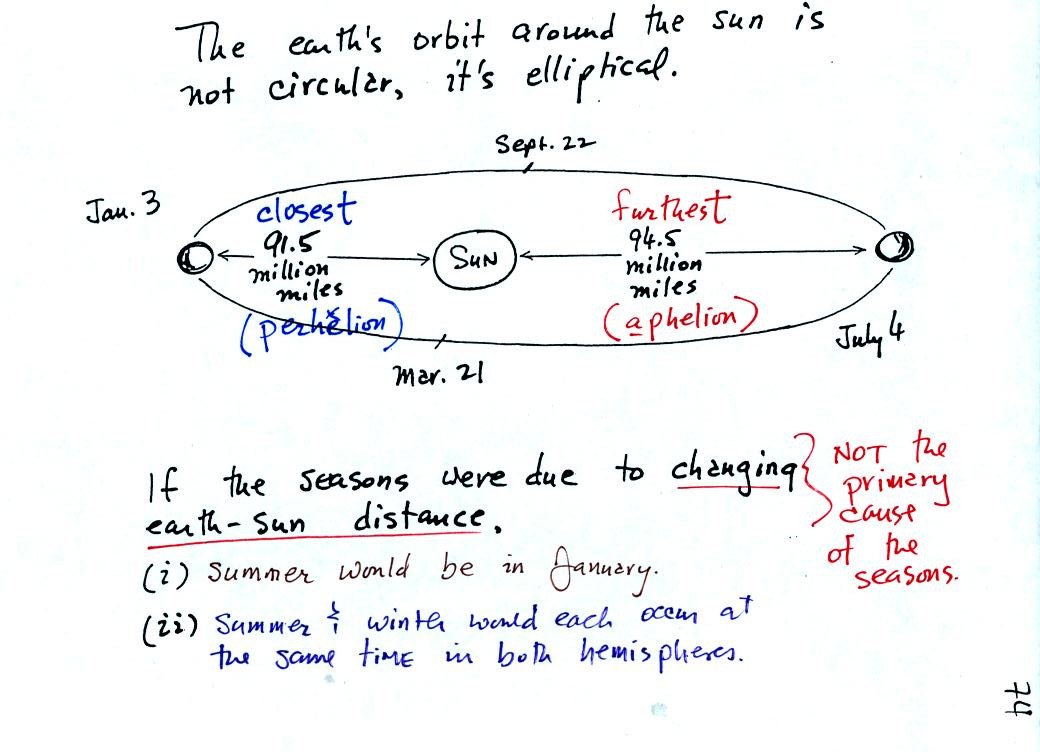 The earth's orbit around the sun is
not circular, it's elliptical.
Sept. 22
Jan. 3
closest
91.5
million
miles
(perihelion)
SUN
furthest
94.5
million
miles
(aphelion)
July 4
Mar. 21
If the seasons were due to changing
earth-sun distance,
NOT the
primary
cause
of the
seasons.
(i) Summer would be in January.
(ii) Summer & winter would each occur at
the same time in both hemispheres.
74